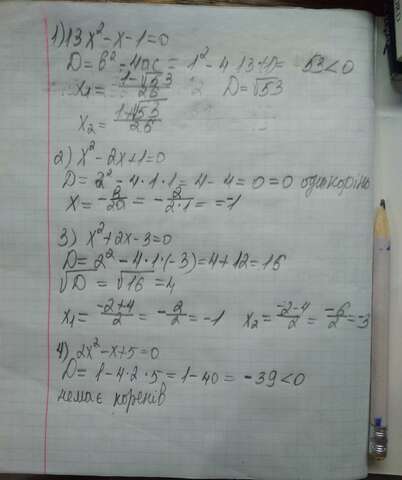 1) 13x² - x - 1 = 0
D = b² - 4ac = 1² - 4·13·1 = 53 < 0
x₁ = (1-√53)/26 D = √53
x₂ = (1+√53)/26
2) x² - 2x + 1 = 0
D = 2² - 4·1·1 = 4 - 4 = 0 = 0 один корінь
x = -2/2a = -2/2·1 = = -1
3) x² + 2x - 3 = 0
D = 2² - 4·1·(-3) = 4 + 12 = 16
√D = √16 = 4
x₁ = (-2+4)/2 = -2/2 = -1 x₂ = (-2-4)/2 = -6/2 = -3
4) 2x² - x + 5 = 0
D = 1 - 4·2·5 = 1 - 40 = -39 < 0
немає коренів